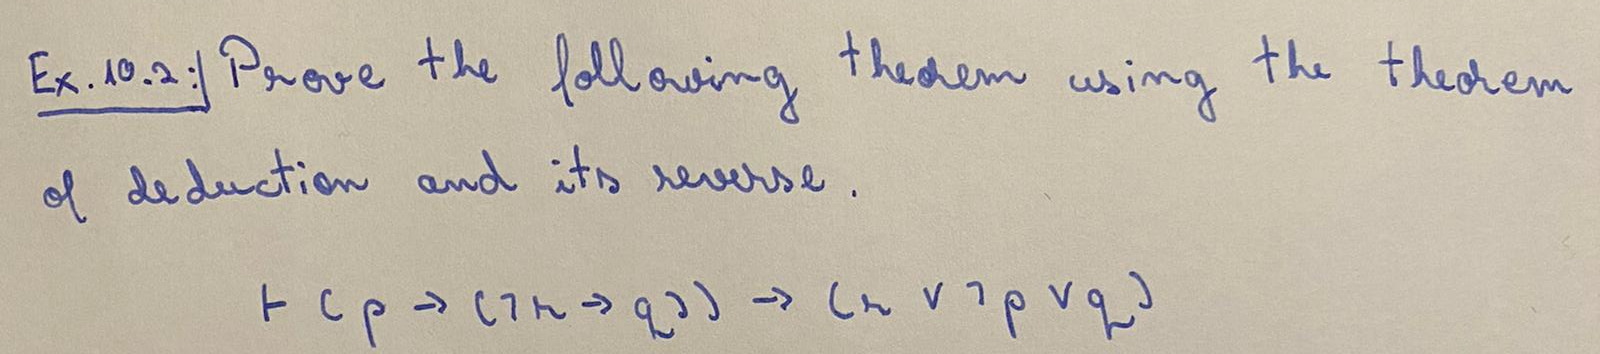 Ex.10.2:| Prove the following theorem using the theorem
of deduction and its reverse.
⊢ (p → (¬r → q)) → (r ∨ ¬p ∨ q)